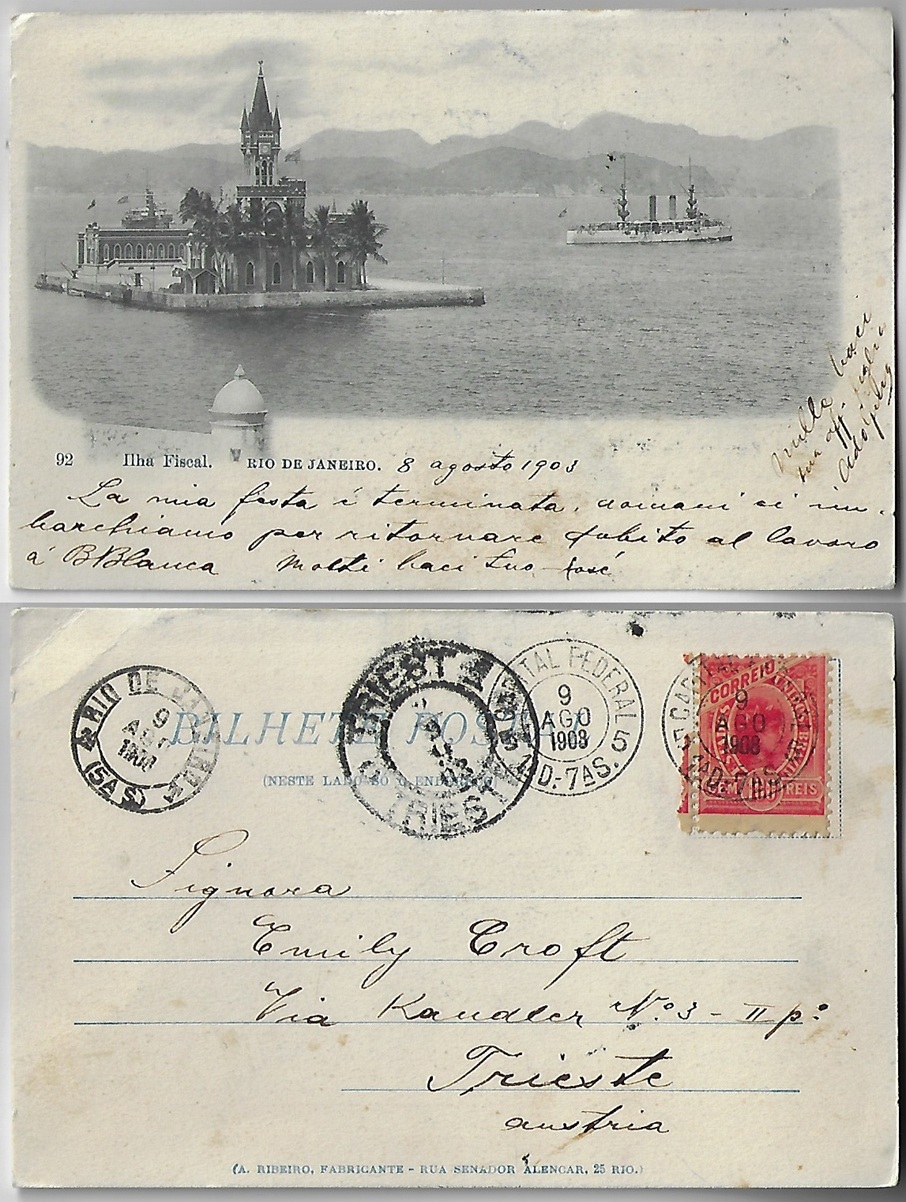 mille baci
tua aff. figlia
92 Ilha Fiscal. RIO DE JANEIRO. 8 agosto 1903
La mia festa é terminata, domani ci im-
barchiamo per ritornare subito al lavoro
á BBlanca Molti baci tuo José
RIO DE JANEIRO
9
AGO
1903
(5AS)
TRIEST
TRIEST
CAPITAL FEDERAL
9
AGO
1903
5 2aD-7AS. 5
CORREIO
9
AGO
1903
REIS
BILHETE POSTAL
(NESTE LADO SÓ O ENDEREÇO)
Signora
Emily Croft
Via Kandler No. 3 - II po.
Trieste
austria
(A. RIBEIRO, FABRICANTE - RUA SENADOR ALENCAR, 25 RIO.)